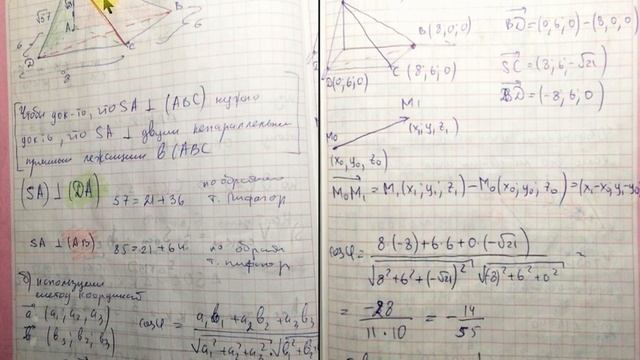 √57
6
A
B
6
D
C
8
Чтобы док-ть, что SA ⊥ (ABC) нужно
док-ь, что SA ⊥ двум непараллельн
прямым лежащим в (ABC
(SA) ⊥ (DA)
57 = 21 + 36
по обратной
т. Пифагор
SA ⊥ (AB)
85 = 21 + 64
по обратн
т. пифагор
б) используем
метод координат
a (a₁, a₂, a₃)
b (b₁; b₂, b₃)
cosφ = a₁b₁ + a₂b₂ + a₃b₃
√a₁² + a₂² + a₃² · √b₁² + b₂
B (8; 0; 0)
D(0; 6; 0)
C (8; 6; 0)
BD = (0, 6, 0) − (8, 0, 0)
SC = (8; 6; −√21)
BD = (−8; 6; 0)
M₁
(x₁, y₁, z₁)
M₀
(x₀, y₀, z₀)
M₀M₁ = M₁(x₁; y₁; z₁) − M₀(x₀; y₀; z₀) = (x₁−x₀, y₁−y₀
cosφ = 8·(−8) + 6·6 + 0·(−√21)
√8² + 6² + (−√21)² √(−8)² + 6² + 0²
= −28 / 11·10 = −14 / 55